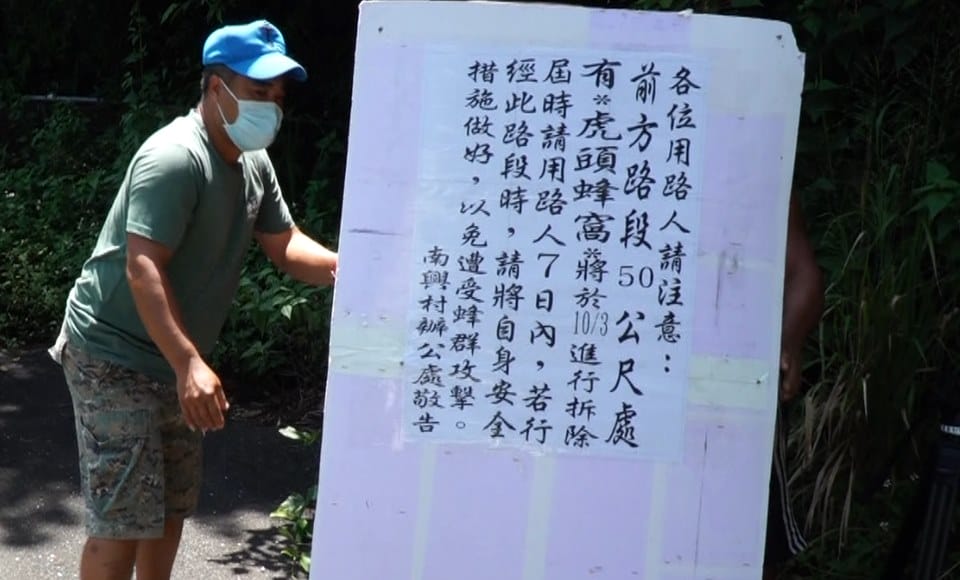 各位用路人請注意：
前方路段50公尺處
有※虎頭蜂窩※將於10/3進行拆除
屆時請用路人7日內，若行
經此路段時，請將自身安全
措施做好，以免遭受蜂群攻擊。
南興村辦公處敬告